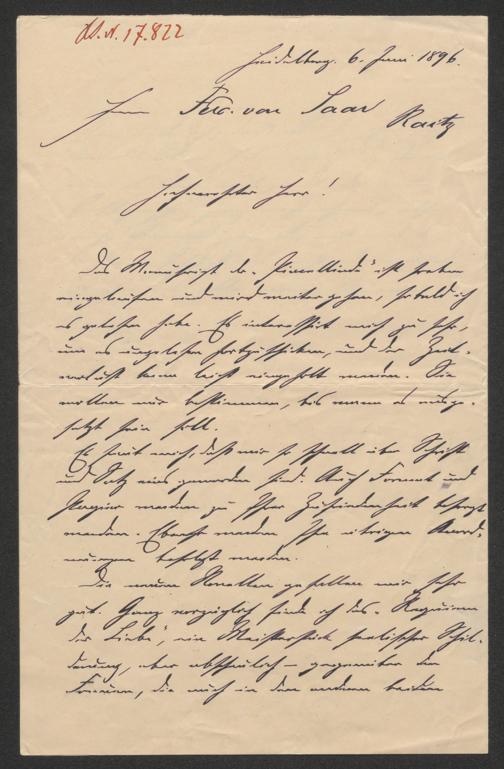 17.822
Heidelberg. 6. Juni 1896.
Herrn Ferd. von Saar
Raitz
Hochverehrter Herr!
Das Manuscript der „Pincelliade“ ist soeben
eingelaufen und wird weiter gehen, sobald ich
es gelesen habe. Es interessirt mich zu sehr,
um es ungelesen fortzuschicken, und der Zeit-
verlust kann leicht eingeholt werden. Sie
wollen nur bestimmen, bis wann es ausge-
setzt sein soll.
Es freut mich, daß wir so schnell über Schrift
und Satz eins geworden sind. Auch Format und
Papier werden zu Ihrer Zufriedenheit besorgt
werden. Ebenso werden Ihre übrigen Anord-
nungen befolgt werden.
Die neuen Novellen gefallen mir sehr
gut. Ganz vorzüglich finde ich das „Requiem
der Liebe“, ein Meisterstück seelischer Schil-
derung, aber abscheulich – gegenüber den
Frauen, die auch in den anderen beiden